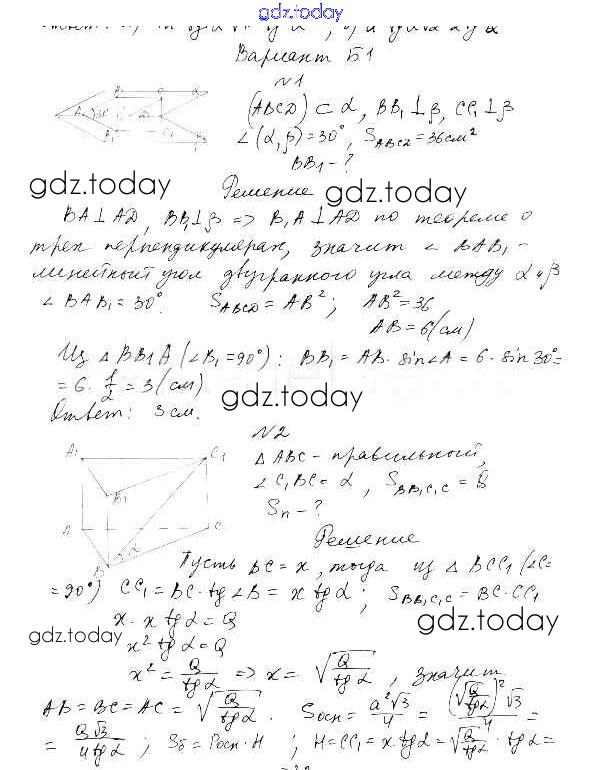 gdz.today
Вариант Б1
N1
(ABCD) ⊂ α, BB₁ ⊥ β, CC₁ ⊥ β
∠(α, β) = 30°, S_ABCD = 36 см²
BB₁ - ?
gdz.today
gdz.today
Решение
BA ⊥ AD, BB₁ ⊥ β => B₁A ⊥ AD по теореме о
трех перпендикулярах, значит ∠BAB₁ -
линейный угол двугранного угла между α и β
∠BAB₁ = 30°. S_ABCD = AB²; AB² = 36
AB = 6 (см)
Из △BB₁A (∠B₁ = 90°): BB₁ = AB · sin∠A = 6 · sin 30° =
= 6 · 1/2 = 3 (см)
gdz.today
Ответ: 3 см.
N2
A₁ C₁
△ABC - правильный,
∠C₁BC = α, S_BB₁C₁C = Q
B₁
Sп - ?
A C
B α
Решение
Пусть BC = x, тогда из △BCC₁ (∠C=
= 90°) CC₁ = BC · tg∠B = x tgα; S_BB₁C₁C = BC · CC₁
x · x tgα = Q
gdz.today
gdz.today
x² tgα = Q
x² = Q/tgα => x = √(Q/tgα), значит
AB = BC = AC = √(Q/tgα). Sосн = a²√3/4 = (√(Q/tgα))²√3/4 =
= Q√3/4tgα; Sб = Pосн · H; H = CC₁ = x tgα = √(Q/tgα) · tgα =